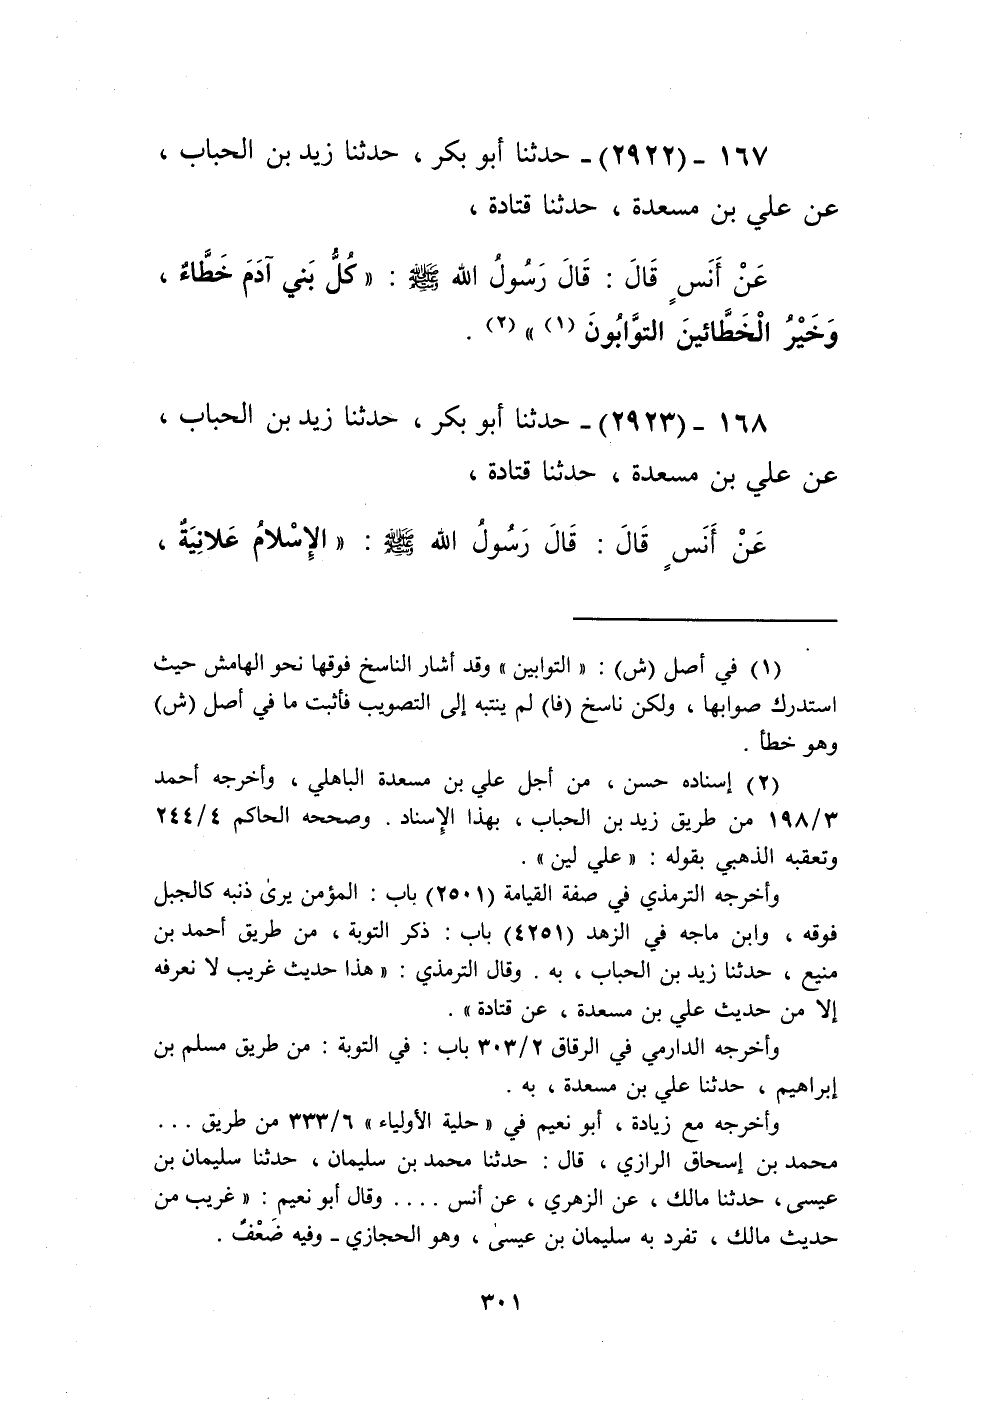 ١٦٧ - (٢٩٢٢) - حدثنا أبو بكر ، حدثنا زيد بن الحباب ،
عن علي بن مسعدة ، حدثنا قتادة ،
عَنْ أَنَسٍ قَالَ : قَالَ رَسُولُ الله ﷺ : « كُلُّ بَني آدَمَ خَطَّاءٌ ،
وَخَيْرُ الْخَطَّائينَ التوَّابُونَ (١) » (٢) .
١٦٨ - (٢٩٢٣) - حدثنا أبو بكر ، حدثنا زيد بن الحباب ،
عن علي بن مسعدة ، حدثنا قتادة ،
عَنْ أَنَسٍ قَالَ : قَالَ رَسُولُ الله ﷺ : « الإِسْلامُ عَلانِيَةٌ ،
(١) في أصل (ش) : « التوابين » وقد أشار الناسخ فوقها نحو الهامش حيث
استدرك صوابها ، ولكن ناسخ (فا) لم ينتبه إلى التصويب فأثبت ما في أصل (ش)
وهو خطأ .
(٢) إسناده حسن ، من أجل علي بن مسعدة الباهلي ، وأخرجه أحمد
١٩٨/٣ من طريق زيد بن الحباب ، بهذا الإسناد . وصححه الحاكم ٢٤٤/٤
وتعقبه الذهبي بقوله : « علي لين » .
وأخرجه الترمذي في صفة القيامة (٢٥٠١) باب : المؤمن يرىٰ ذنبه كالجبل
فوقه ، وابن ماجه في الزهد (٤٢٥١) باب : ذكر التوبة ، من طريق أحمد بن
منيع ، حدثنا زيد بن الحباب ، به . وقال الترمذي : « هذا حديث غريب لا نعرفه
إلا من حديث علي بن مسعدة ، عن قتادة » .
وأخرجه الدارمي في الرقاق ٣٠٣/٢ باب : في التوبة : من طريق مسلم بن
إبراهيم ، حدثنا علي بن مسعدة ، به .
وأخرجه مع زيادة ، أبو نعيم في « حلية الأولياء » ٣٣٣/٦ من طريق ...
محمد بن إسحاق الرازي ، قال : حدثنا محمد بن سليمان ، حدثنا سليمان بن
عيسى ، حدثنا مالك ، عن الزهري ، عن أنس .... وقال أبو نعيم : « غريب من
حديث مالك ، تفرد به سليمان بن عيسىٰ ، وهو الحجازي - وفيه ضَعْفٌ .
٣٠١